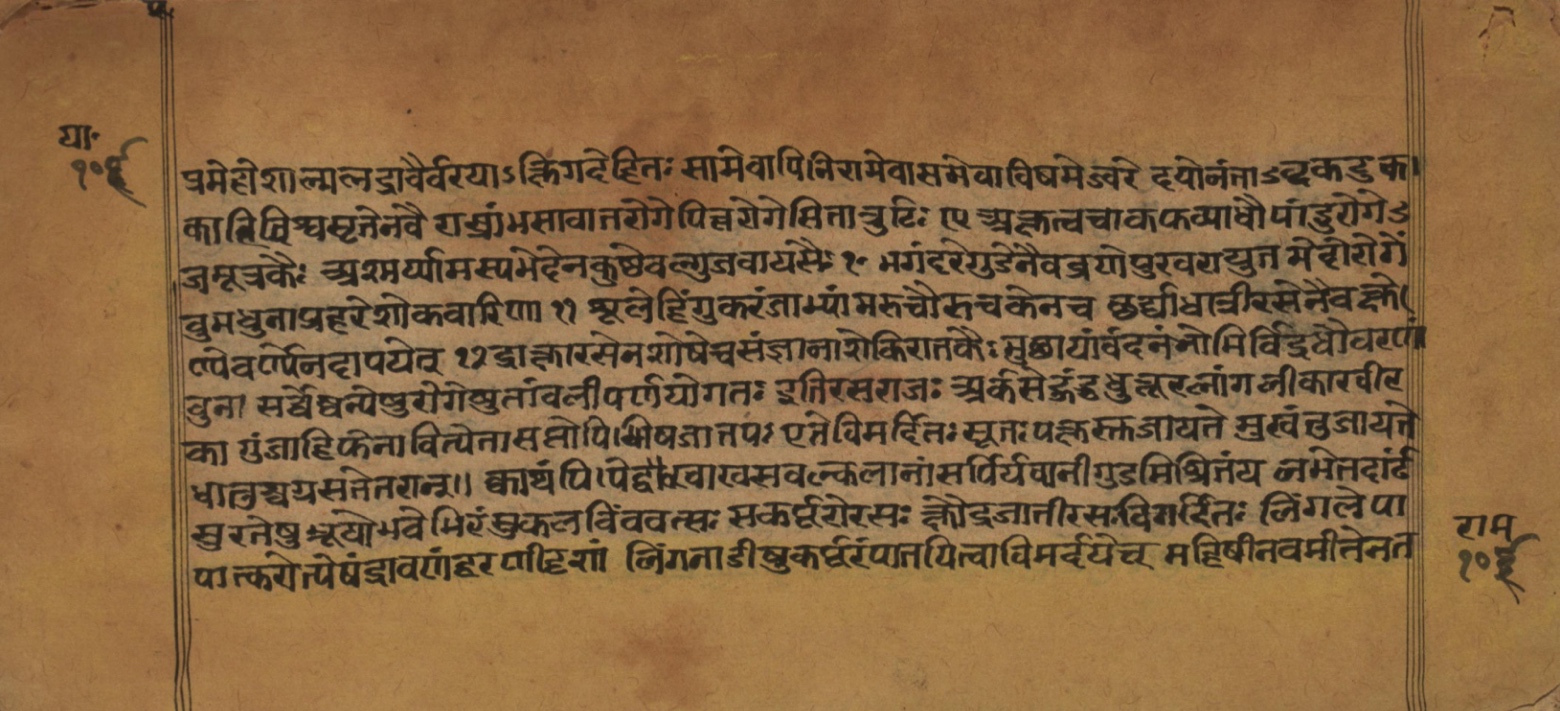 या॰
१०६
प्रमेहोशाल्मलद्रावैर्वरयाऽक्षिगदेहितः सामेवापिनिरामेवासमेवाविषमेज्वरे दयोनंताऽब्दकटुका
कातिविश्वसृतेनवै राम्रांभसावातरोगेपित्तरोगेसितात्रुटिः ९ अक्षत्वचाकफव्याधौपांडुरोगेऽ
जमूत्रकैः अश्मर्य्यामस्पभेदेनकुष्ठेवल्गुजवायसैः १० भगंदरेगुडेनैवव्रणेपुरवरायुत मेदोरोगें
बुमधुनाप्रहरेशोकवारिणा ११ शूलेहिंगुकरंजाभ्यांमरुचौरुचकेनच छर्द्यांधात्रीरसेनैव
र्णेनदापयेत् १२ द्राक्षारसेनशोषेचसंज्ञानाशेकिरातकैः मूछायांर्वदनंनोमिर्विद्रधौवरणां
बुना सर्व्वेष्वन्येषुरोगेषुतांवलीपर्णयोगतः इतिरसराजः अर्कसेहुंडधुत्तूरलांगलीकारवीर
का गुंजाहिफेनावित्येतासप्तोपविषजातयः एतेविमर्दितः सूतःपक्षछिन्नजायते मुखंतुजायते
धातुश्चग्रसतेतरान्॥ क्वाथंपिपेद्यःखाखसवल्कलानांसर्पिर्यवानीगुडमिश्रितंय नमेतदांर्ढ
सुरतेषुभूयोभवेभिरंशुकलविंववत्सः सकर्प्पूरोरसः क्षौद्रजातीरसविमर्दितः लिंगलेपा
पात्करोत्येषंद्रावणंहरणीदृशां लिंगनाडीषुकर्प्पूरंपातयित्वाविमर्द्दयेच् महिषीनवमीतेनत
राम
१०६